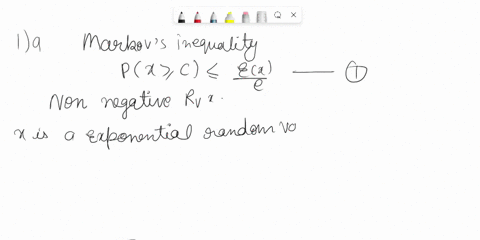 1)a Markov's inequality
P(x ≥ C) ≤ E(x)/c —— ①
Non negative Rv x.
x is a exponential random va